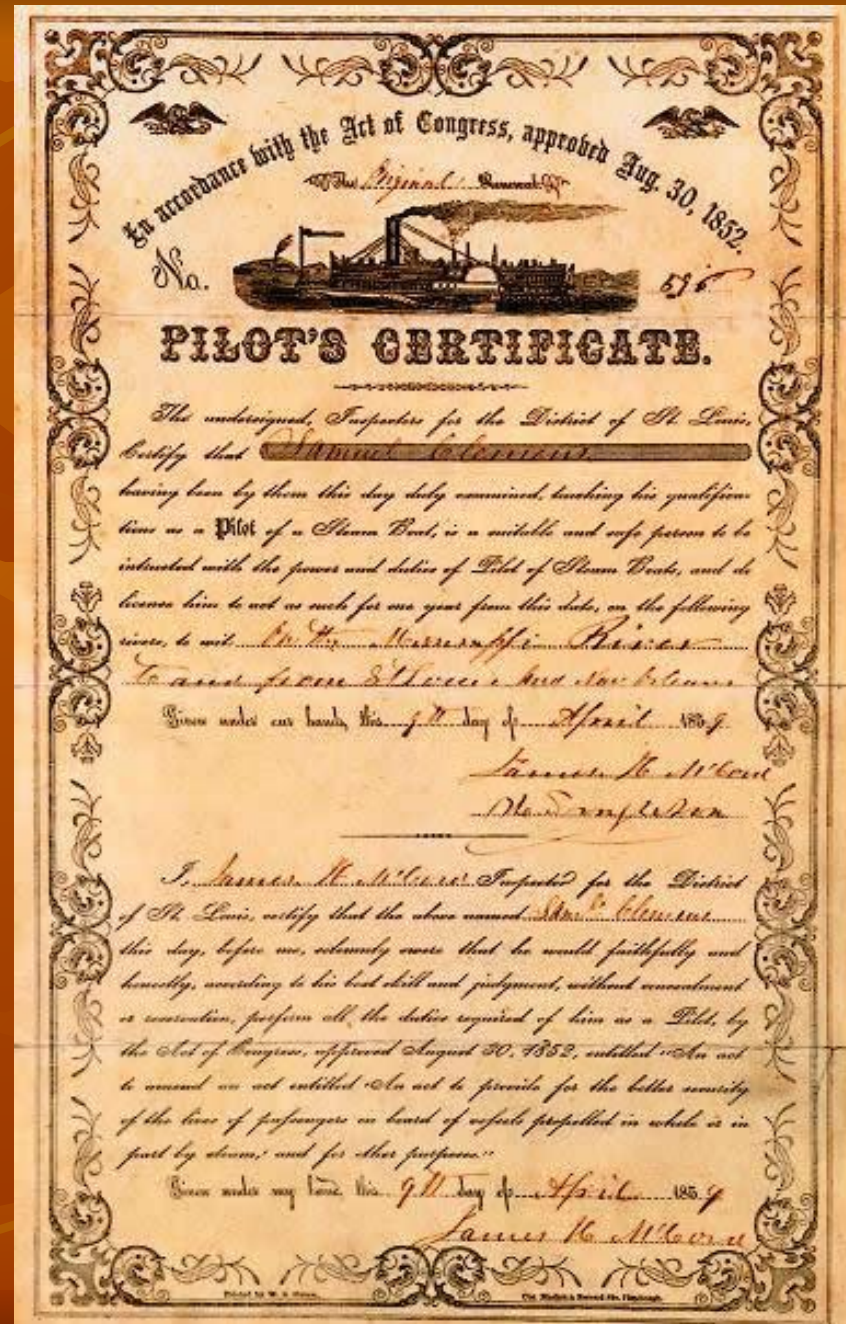 In accordance with the Act of Congress, approved Aug. 30, 1852.
The Original Renewal
No.
PILOT'S CERTIFICATE.
The undersigned, Inspectors for the District of St. Louis,
Certify that Samuel Clemens
having been by them this day duly examined, touching his qualifica-
tions as a Pilot of a Steam Boat, is a suitable and safe person to be
intrusted with the power and duties of Pilot of Steam Boats, and do
license him to act as such for one year from this date, on the following
rivers, to wit On the Mississippi River
to and from St Louis and New Orleans
Given under our hands, this 9th day of April 1859
James H McCord
Singleton
I, James H McCord Inspector for the District
of St. Louis, certify that the above named Saml Clemens
this day, before me, solemnly swore that he would faithfully and
honestly, according to his best skill and judgment, without concealment
or reservation, perform all the duties required of him as a Pilot, by
the Act of Congress, approved August 30, 1852, entitled "An act
to amend an act entitled "An act to provide for the better security
of the lives of passengers on board of vessels propelled in whole or in
part by steam," and for other purposes."
Given under my hand, this 9th day of April 1859
James H McCord
Printed by W. S.